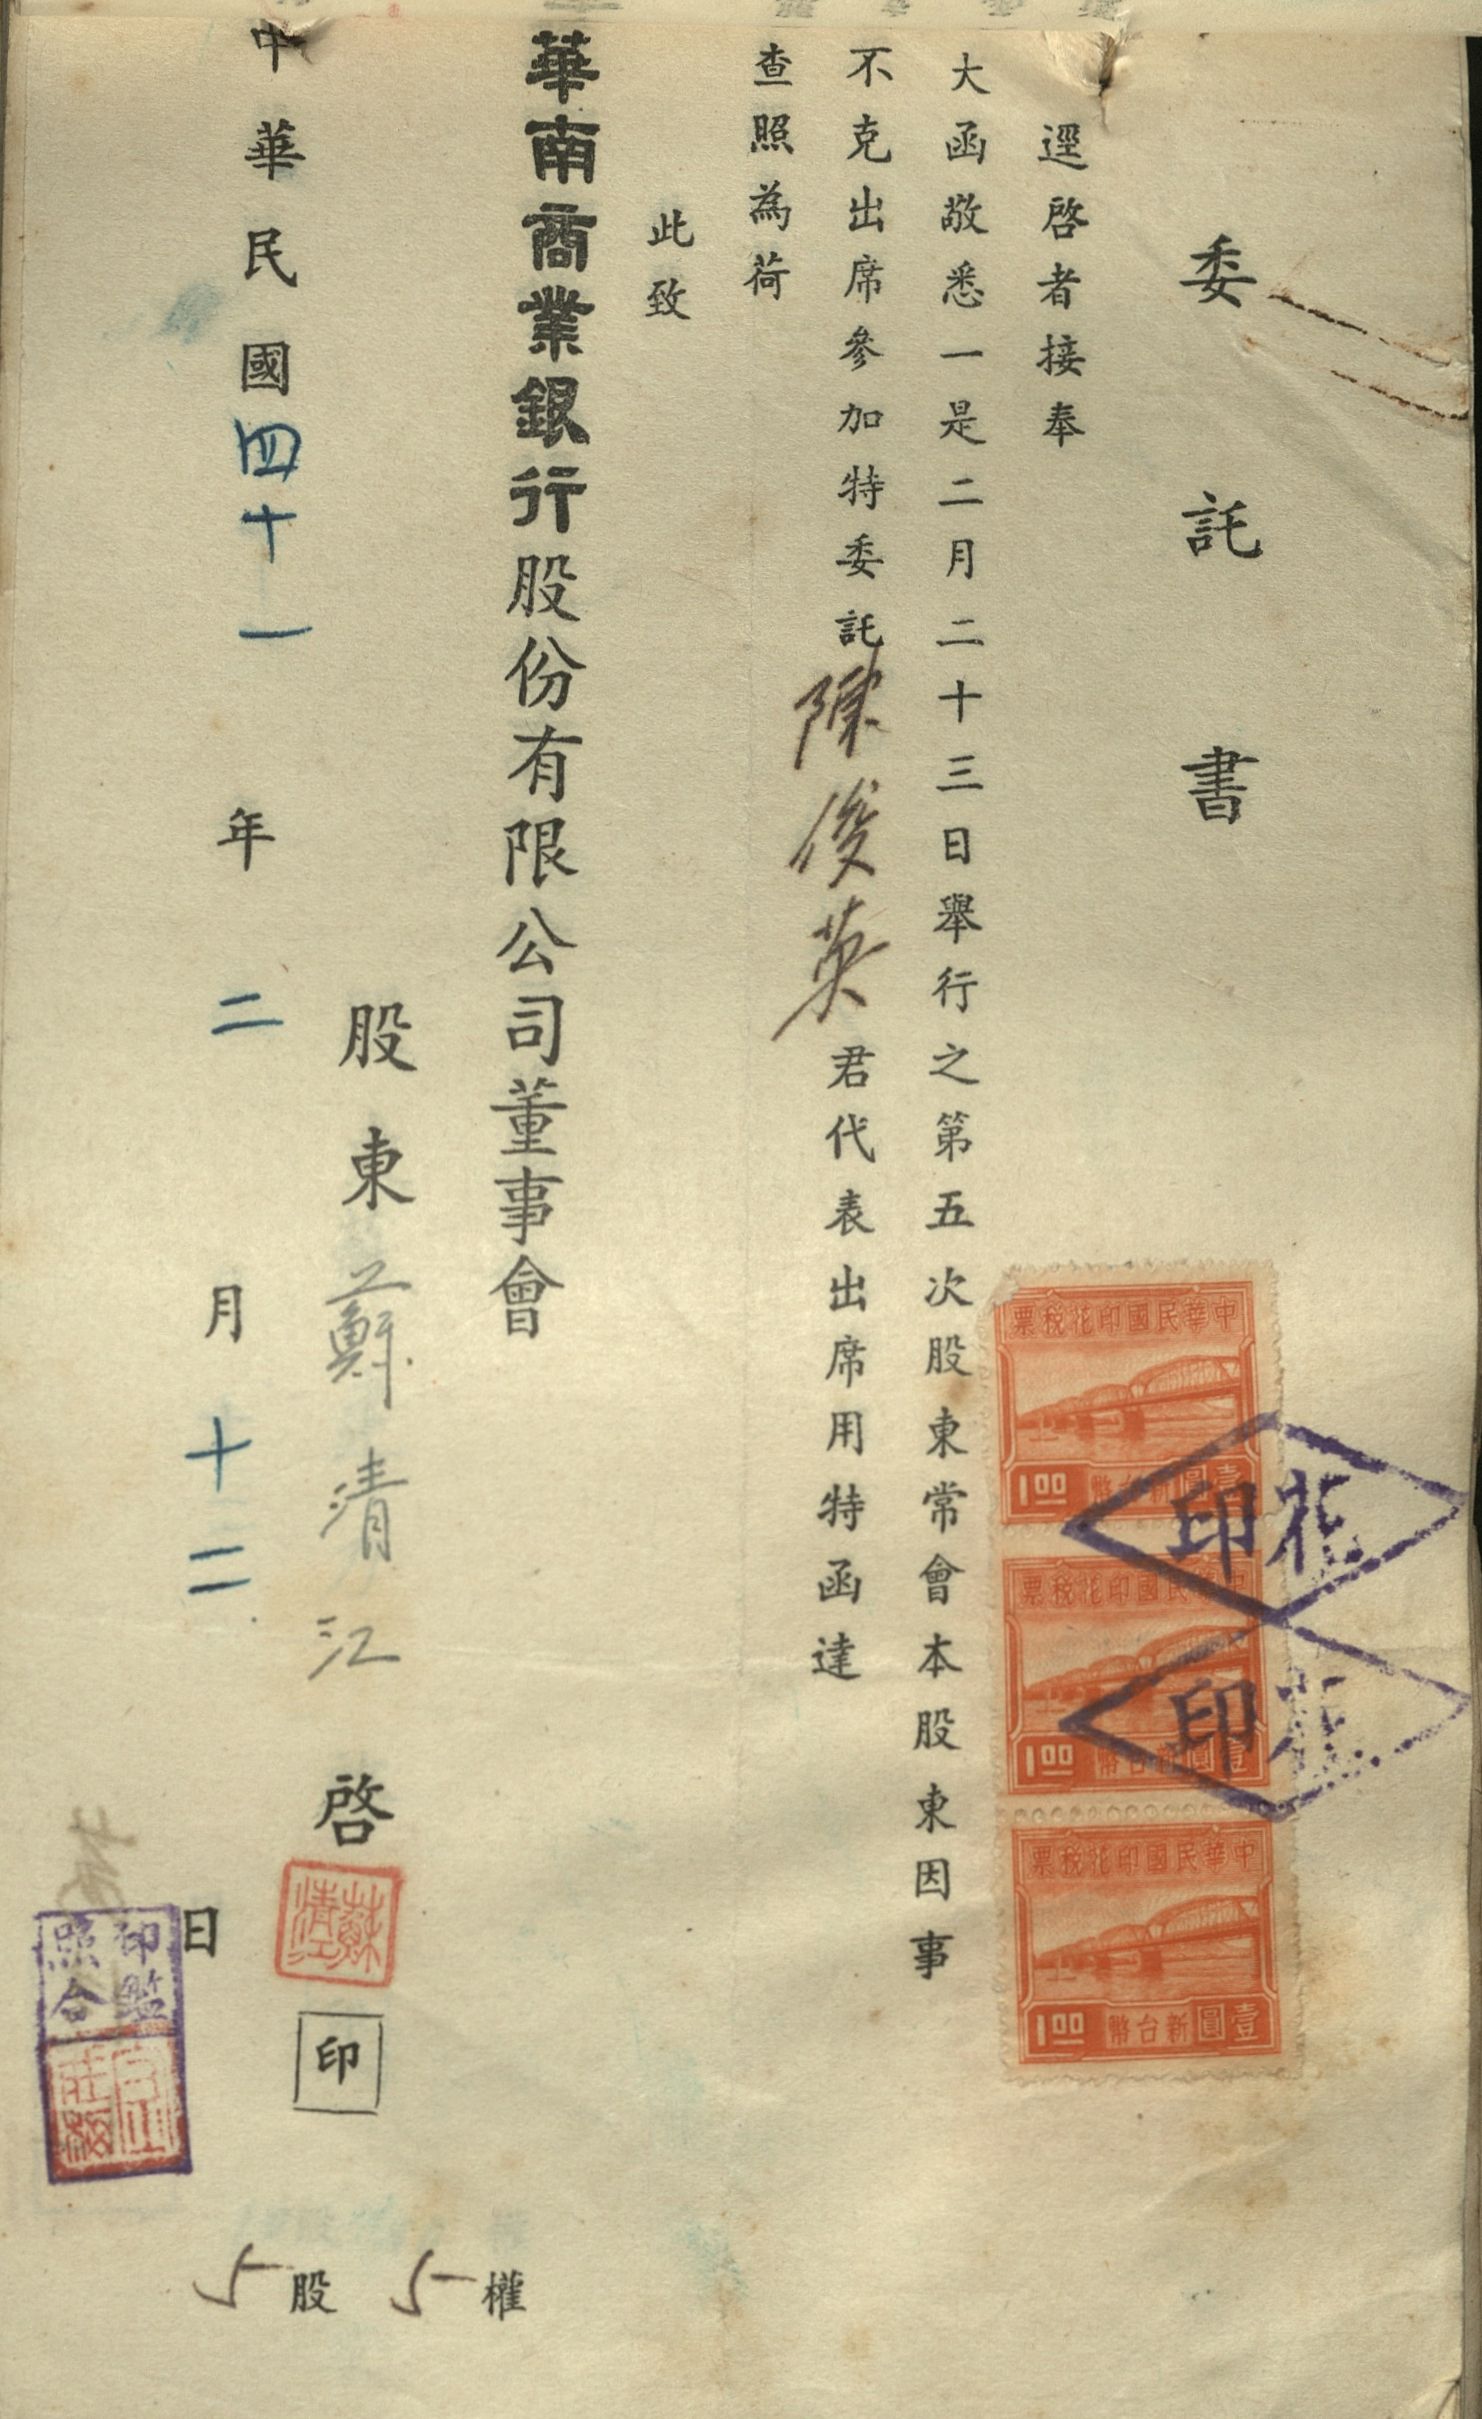 委託書
逕啓者接奉
大函敬悉一是二月二十三日舉行之第五次股東常會本股東因事
不克出席參加特委託陳俊英君代表出席用特函達
查照為荷
此致
華南商業銀行股份有限公司董事會
股東蘇清江啓
印
中華民國四十一年二月十二日
5股 5權
票稅花印國民華中
1.00 幣台新圓壹
花印
票稅花印國民華中
1.00 幣台新圓壹
花印
票稅花印國民華中
1.00 幣台新圓壹
蘇清江
印鑑
照合